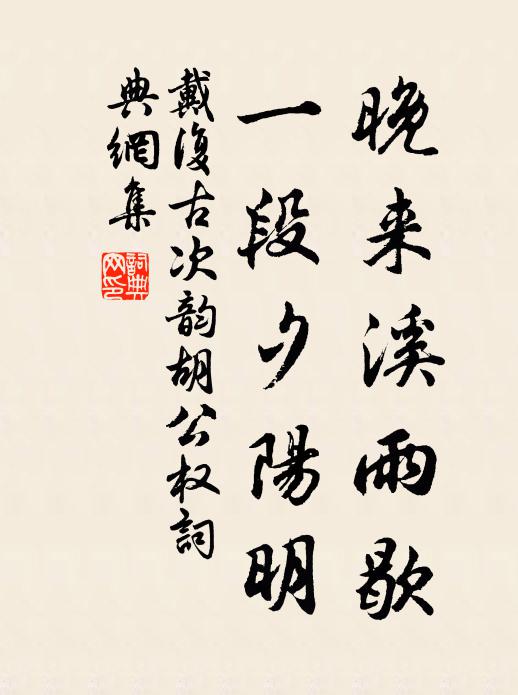 晚来溪雨歇
一段夕陽明
戴復古次韵胡公权詞
典網集
詞典
网印